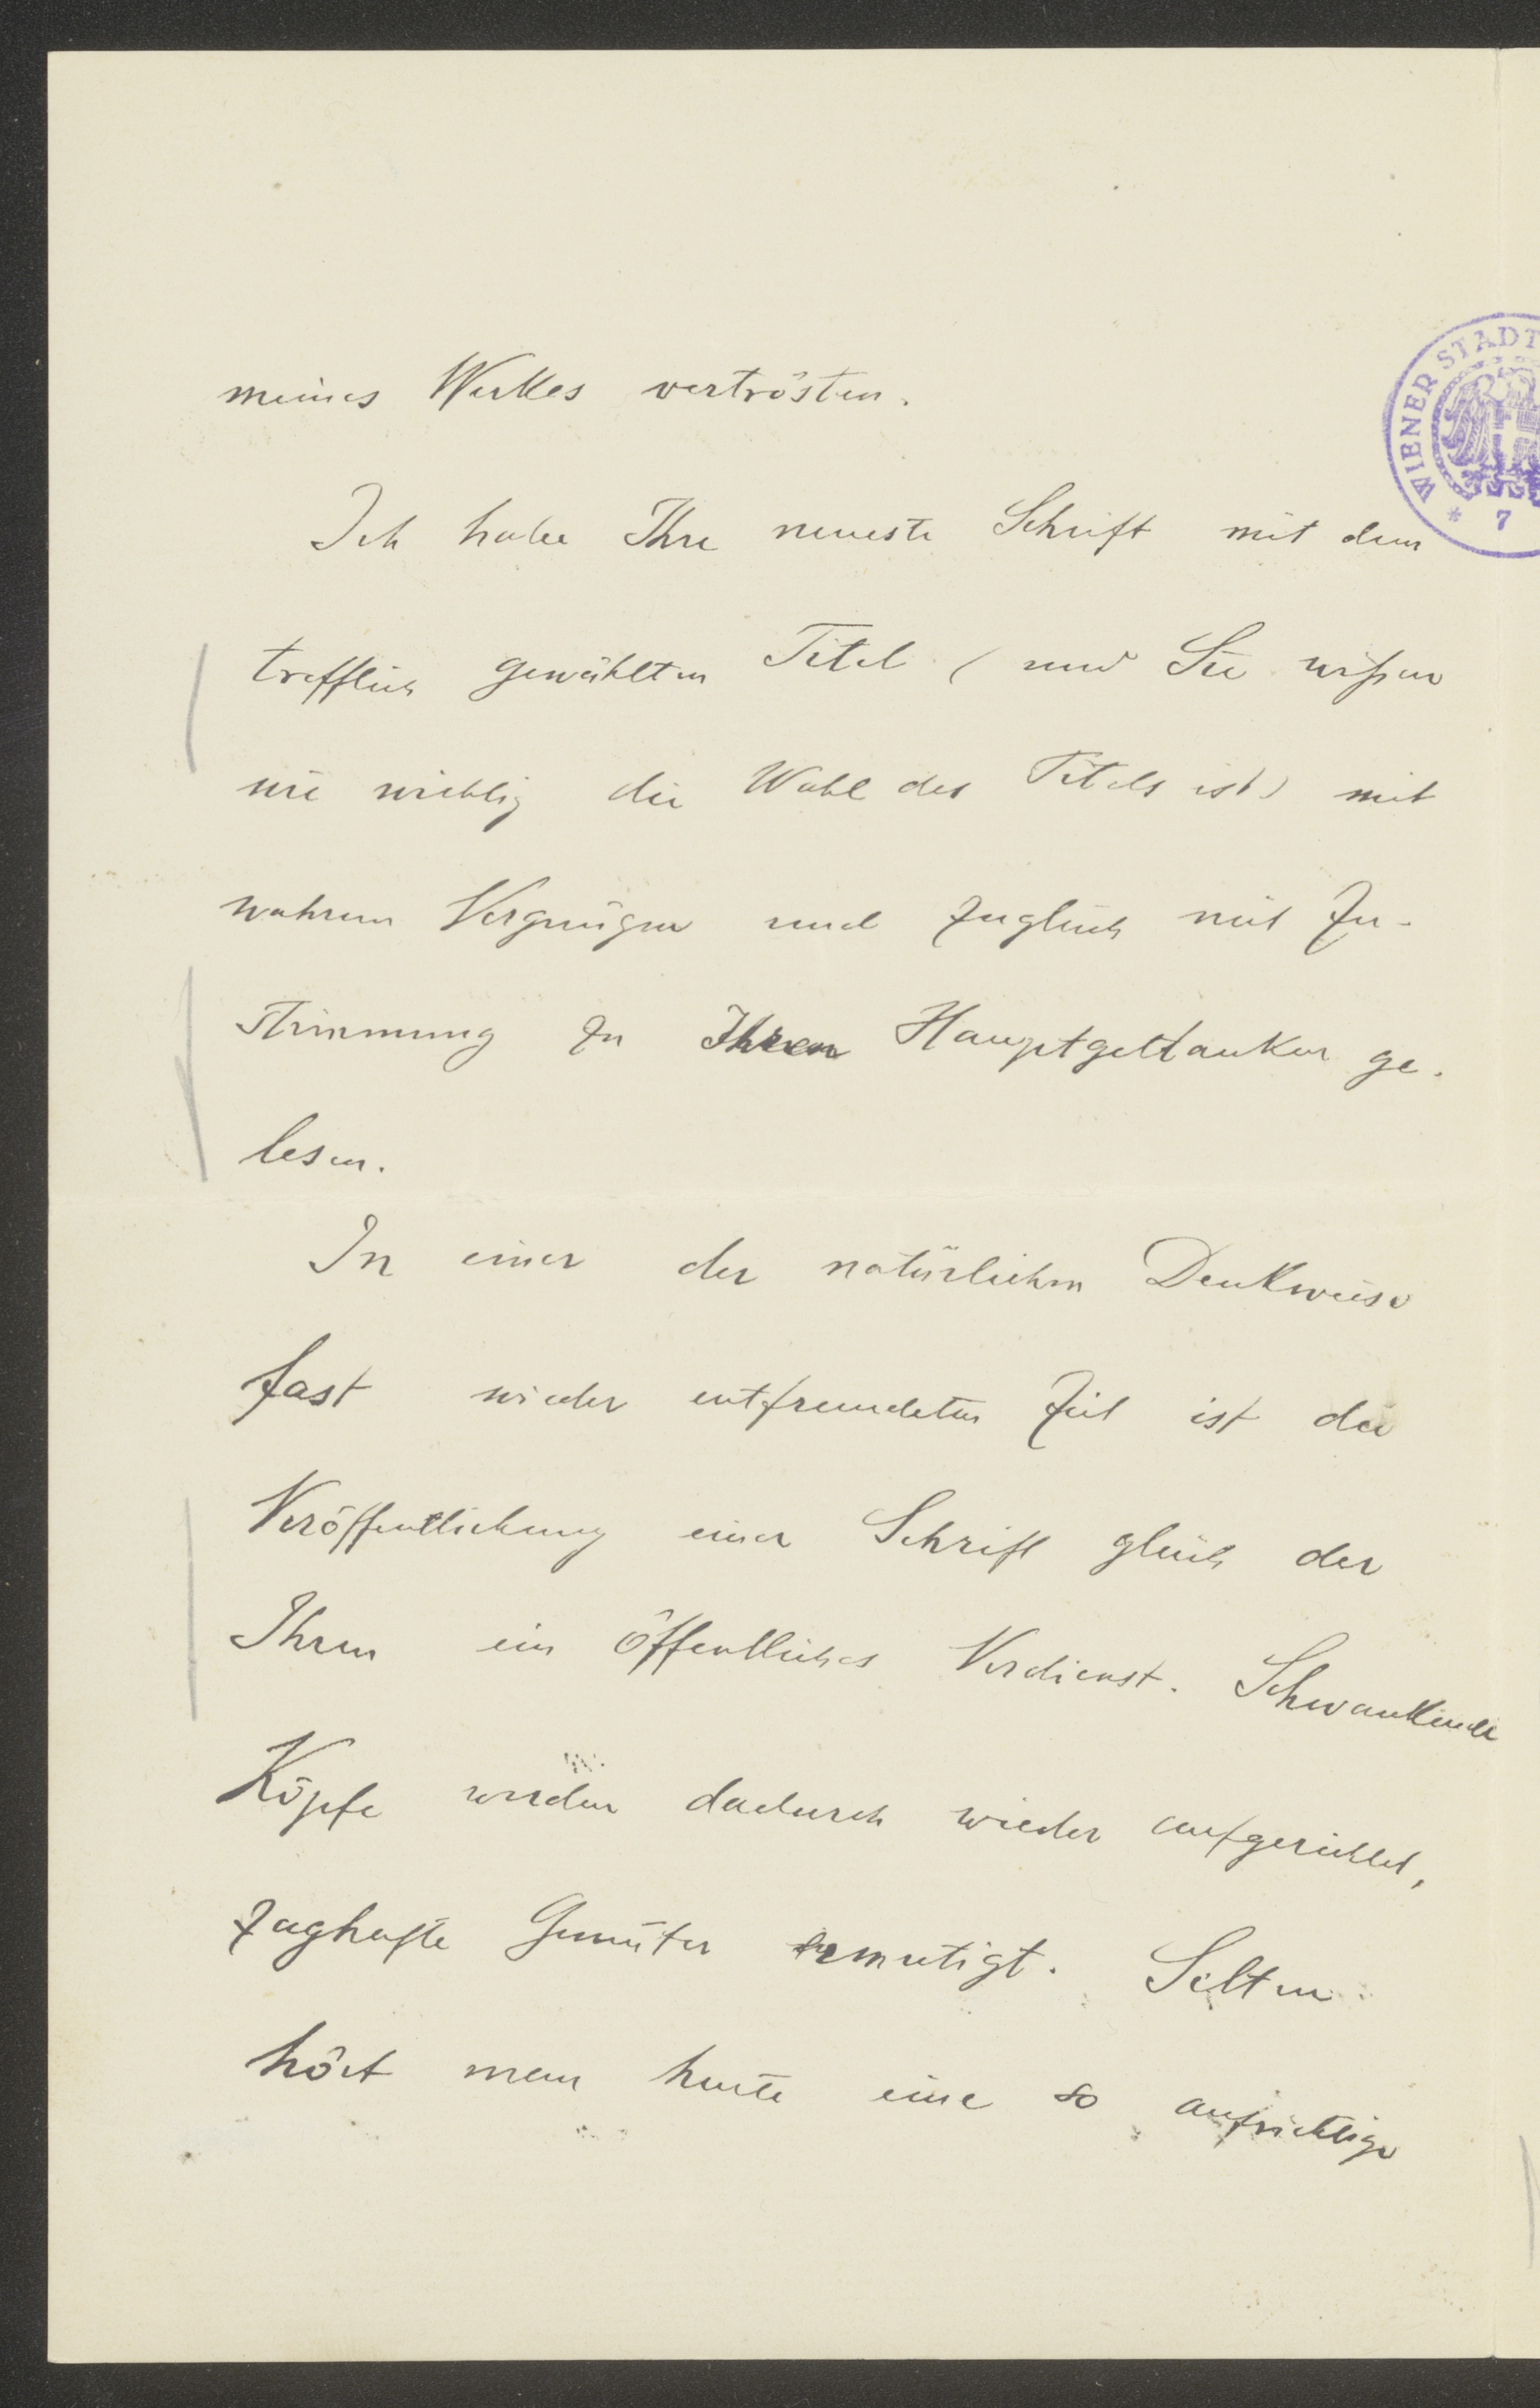 meines Werkes vertrösten.
WIENER STADT
* 7
Ich habe Ihre neueste Schrift mit dem
trefflich gewählten Titel (und Sie wißen
wie wichtig die Wahl des Titels ist) mit
wahrem Vergnügen und zugleich mit Zu-
stimmung zu Ihren Hauptgedanken ge-
lesen.
In einer der natürlichen Denkweise
fast wieder entfremdeten Zeit ist die
Veröffentlichung einer Schrift gleich der
Ihren ein öffentliches Verdienst. Schwankende
Köpfe werden dadurch wieder aufgerichtet,
zaghafte Gemüter ermutigt. Selten
hört man heute eine so aufrichtige